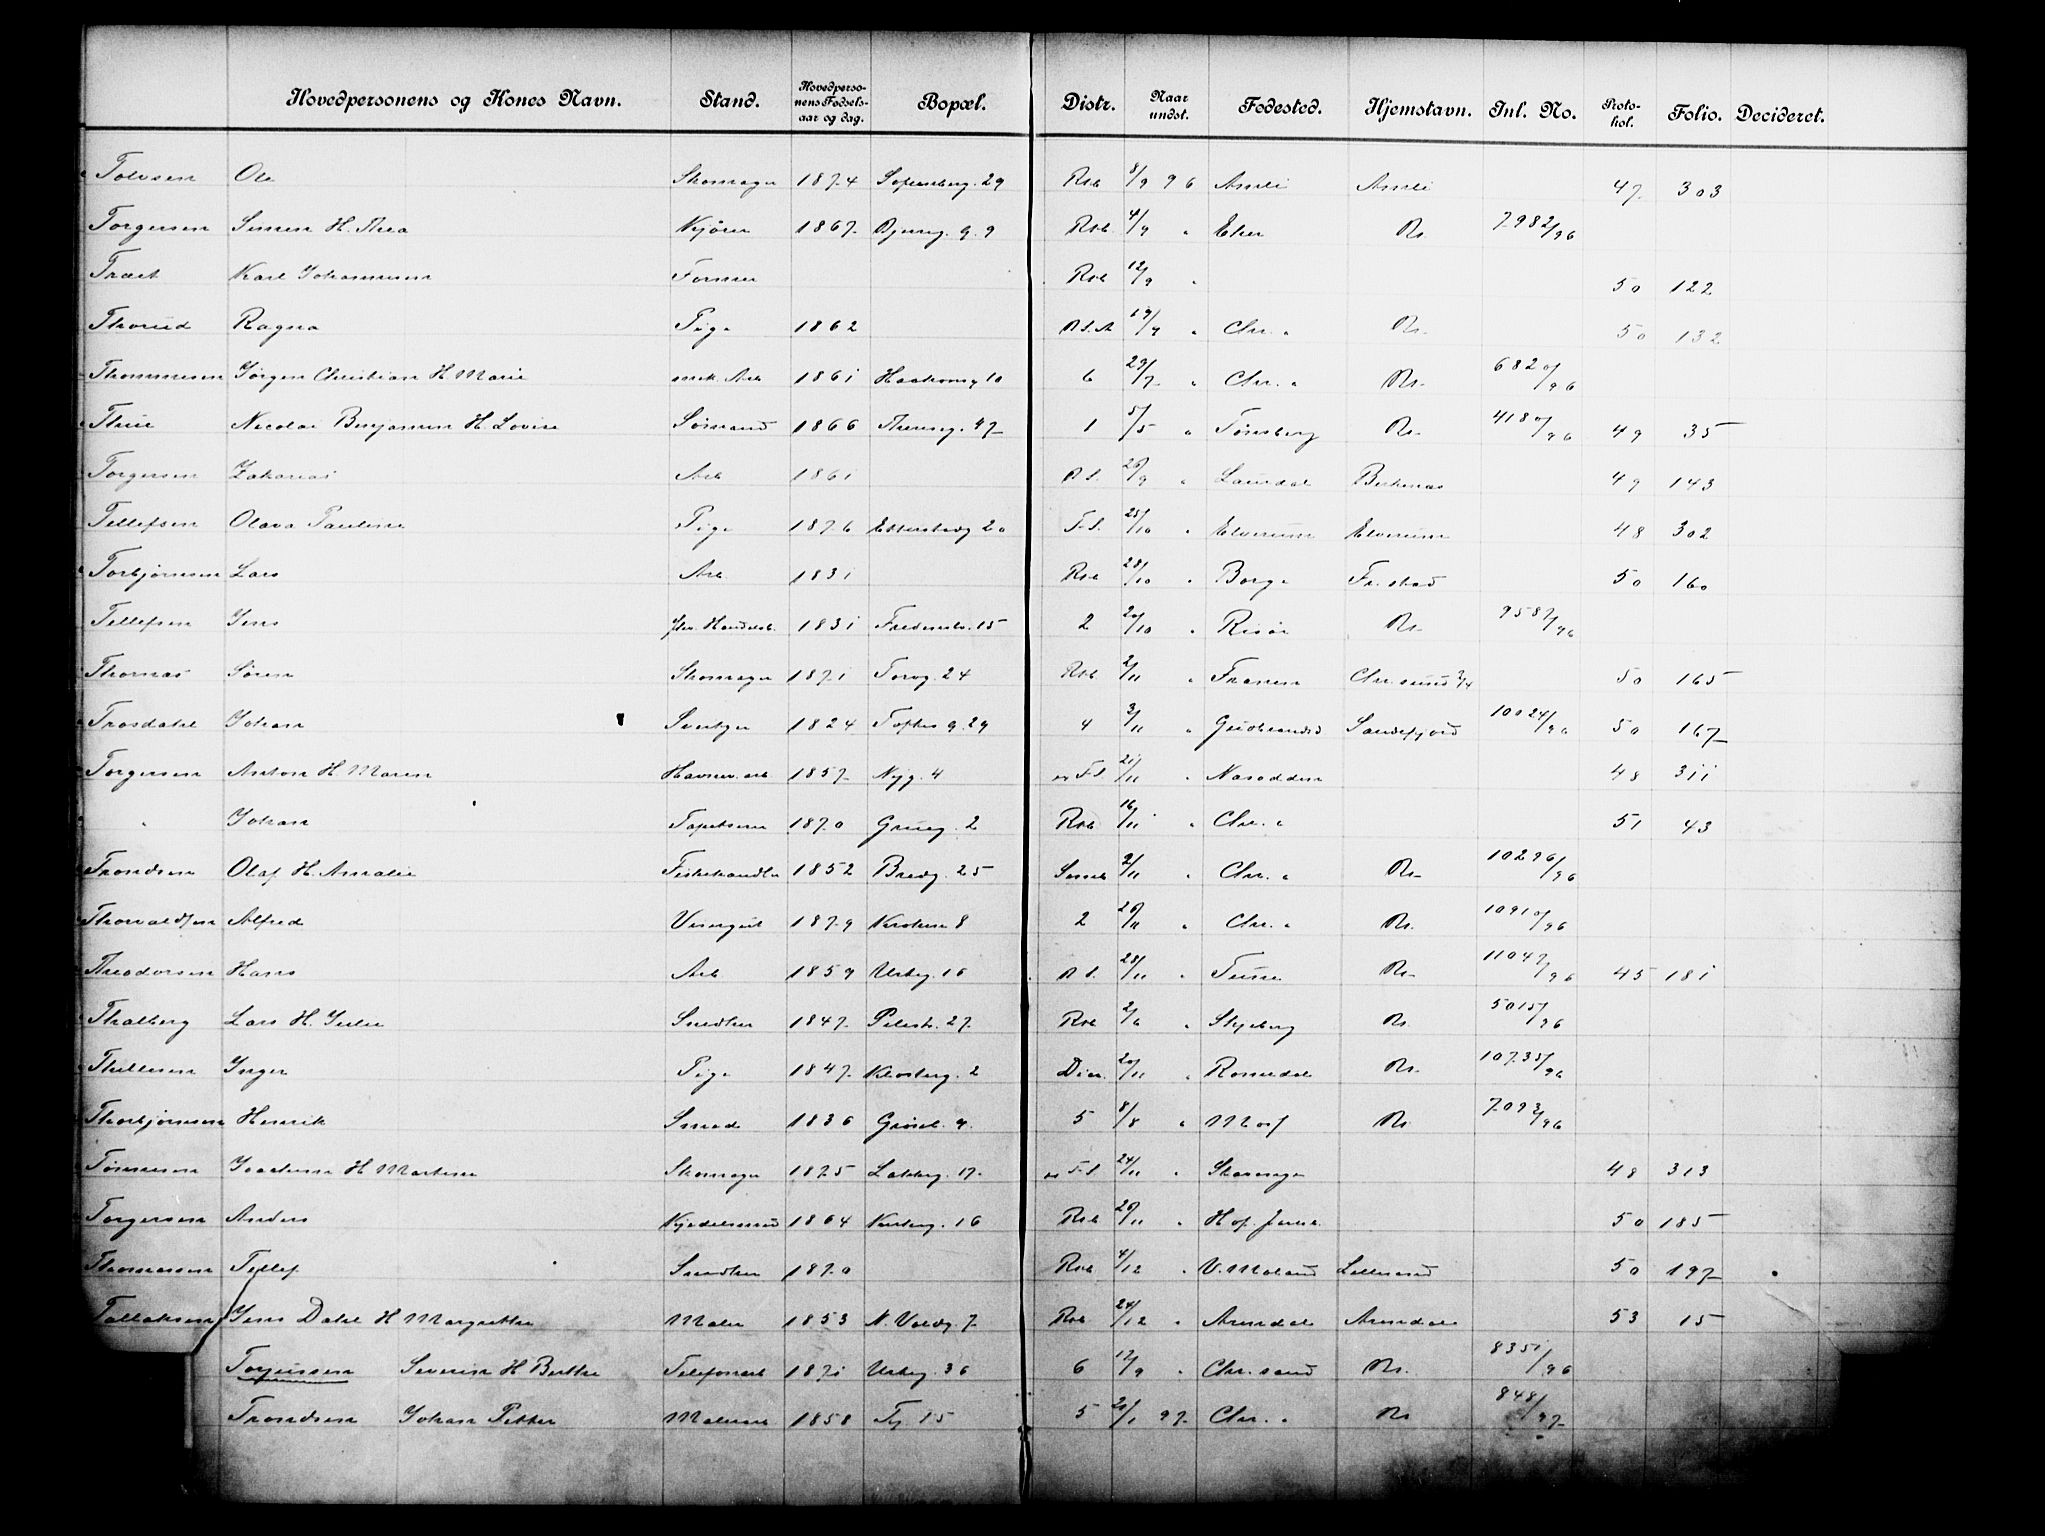 Hovedpersonens og Kones Navn. Stand. Hovedpersonens Fødselsaar og dag. Bopæl. Distr. Naar undst. Fødested. Hjemstavn. Inl. No. Protokol. Folio. Decideret.
Ole Skomager 1874 29 Rsk 8/9 96 Amli Amli 47 303
Torgersen Simen H. Thea Kjører 1867 9 Rsk 4/9 " Eker Kr. 7982/96
Karl Johannesen Former Rsk 12/9 " 50 122
Thorud Ragna Pige 1862 19/9 " Chr. " Kr. 50 132
Thommesen Jørgen Christian H Marie mek. Arb 1861 Haakonsg 10 6 29/7 " Chr. " Kr. 6820/96
Thue Nicolai Benjamin H Lovise Sømand 1866 Thereseg. 47 1 5/5 " Tønsberg Kr. 4180/96 49 35
Torgersen Zakarias Arb 1861 26/9 " Laurdal Birkenæs 49 143
Tellefsen Olava Pauline Pige 1876 Etterstadg 20 F.S. 25/10 " Elverum Elverum 48 302
Torbjørnsen Lars Arb 1831 Rsk 28/10 " Borge Fr.stad 50 160
Tellefsen Jens 1831 15 2 20/10 " Risør Kr. 9587/96
Thomas Søren Skomager 1871 Torvg. 24 Rsk 2/11 " Frænen Chr.sund 50 165
Trosdahl Johan Svertger 1824 Toftes g. 29 4 3/11 " Gudbrandsd Sandefjord 10024/96 50 167
Torgersen Anton H Maren Havnev. arb 1857 Nyg. 4 F.S. 21/11 " Næsodden 48 311
" Johan Tapetserer 1870 2 Rsk 16/11 " Chr. " 51 43
Trondsen Olaf H. Amalie Fiskehandler 1852 Bredg. 25 2/11 " Chr. " Kr. 10296/96
Thorvaldsen Alfred Visergut 1879 8 2 26/11 " Chr. " Kr. 10910/96
Theodorsen Hans Arb 1859 Urteg. 16 28/11 " Tune Kr. 11049/96 45 181
Thalberg Lars H. Julie Snedker 1847 Pilestr. 27 Rsk 2/6 " Skjeberg Kr. 5015/96
Thillesen Inger Pige 1847 2 20/11 " Romedal Kr. 10735/96
Thorbjørnsen Henrik Smed 1836 9 5 8/8 " Moss Kr. 7093/96
Tønnesen Joachim H Martine Skomager 1875 Lakkeg. 17 F.S. 24/11 " 48 313
Torgersen Anders Kjedelsmed 1864 16 Rsk 26/11 " Hof. Jarlsb. 50 185
Thomassen Tellef Snedker 1870 Rsk 4/12 " V. Moland Lillesand 50 197
Tallaksen Jens Dahl H Margrethe Maler 1853 7 Rsk 24/12 " Arendal Arendal 53 15
Torjussen Severin H Berthe Telefonarb 1871 Urteg. 36 6 17/9 " Chr.sand Kr. 8351/96
Trondsen Johan Petter Malersv 1858 15 5 21/1 97 Chr. " Kr. 848/97